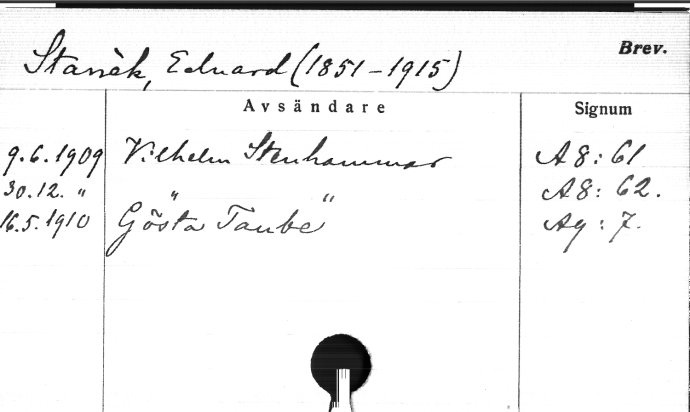 Brev.
Staněk, Eduard (1851-1915)
Avsändare Signum
9.6.1909 Vilhelm Stenhammar A8:61
30.12. " " " A8:62.
16.5.1910 Gösta Taube A9:7.